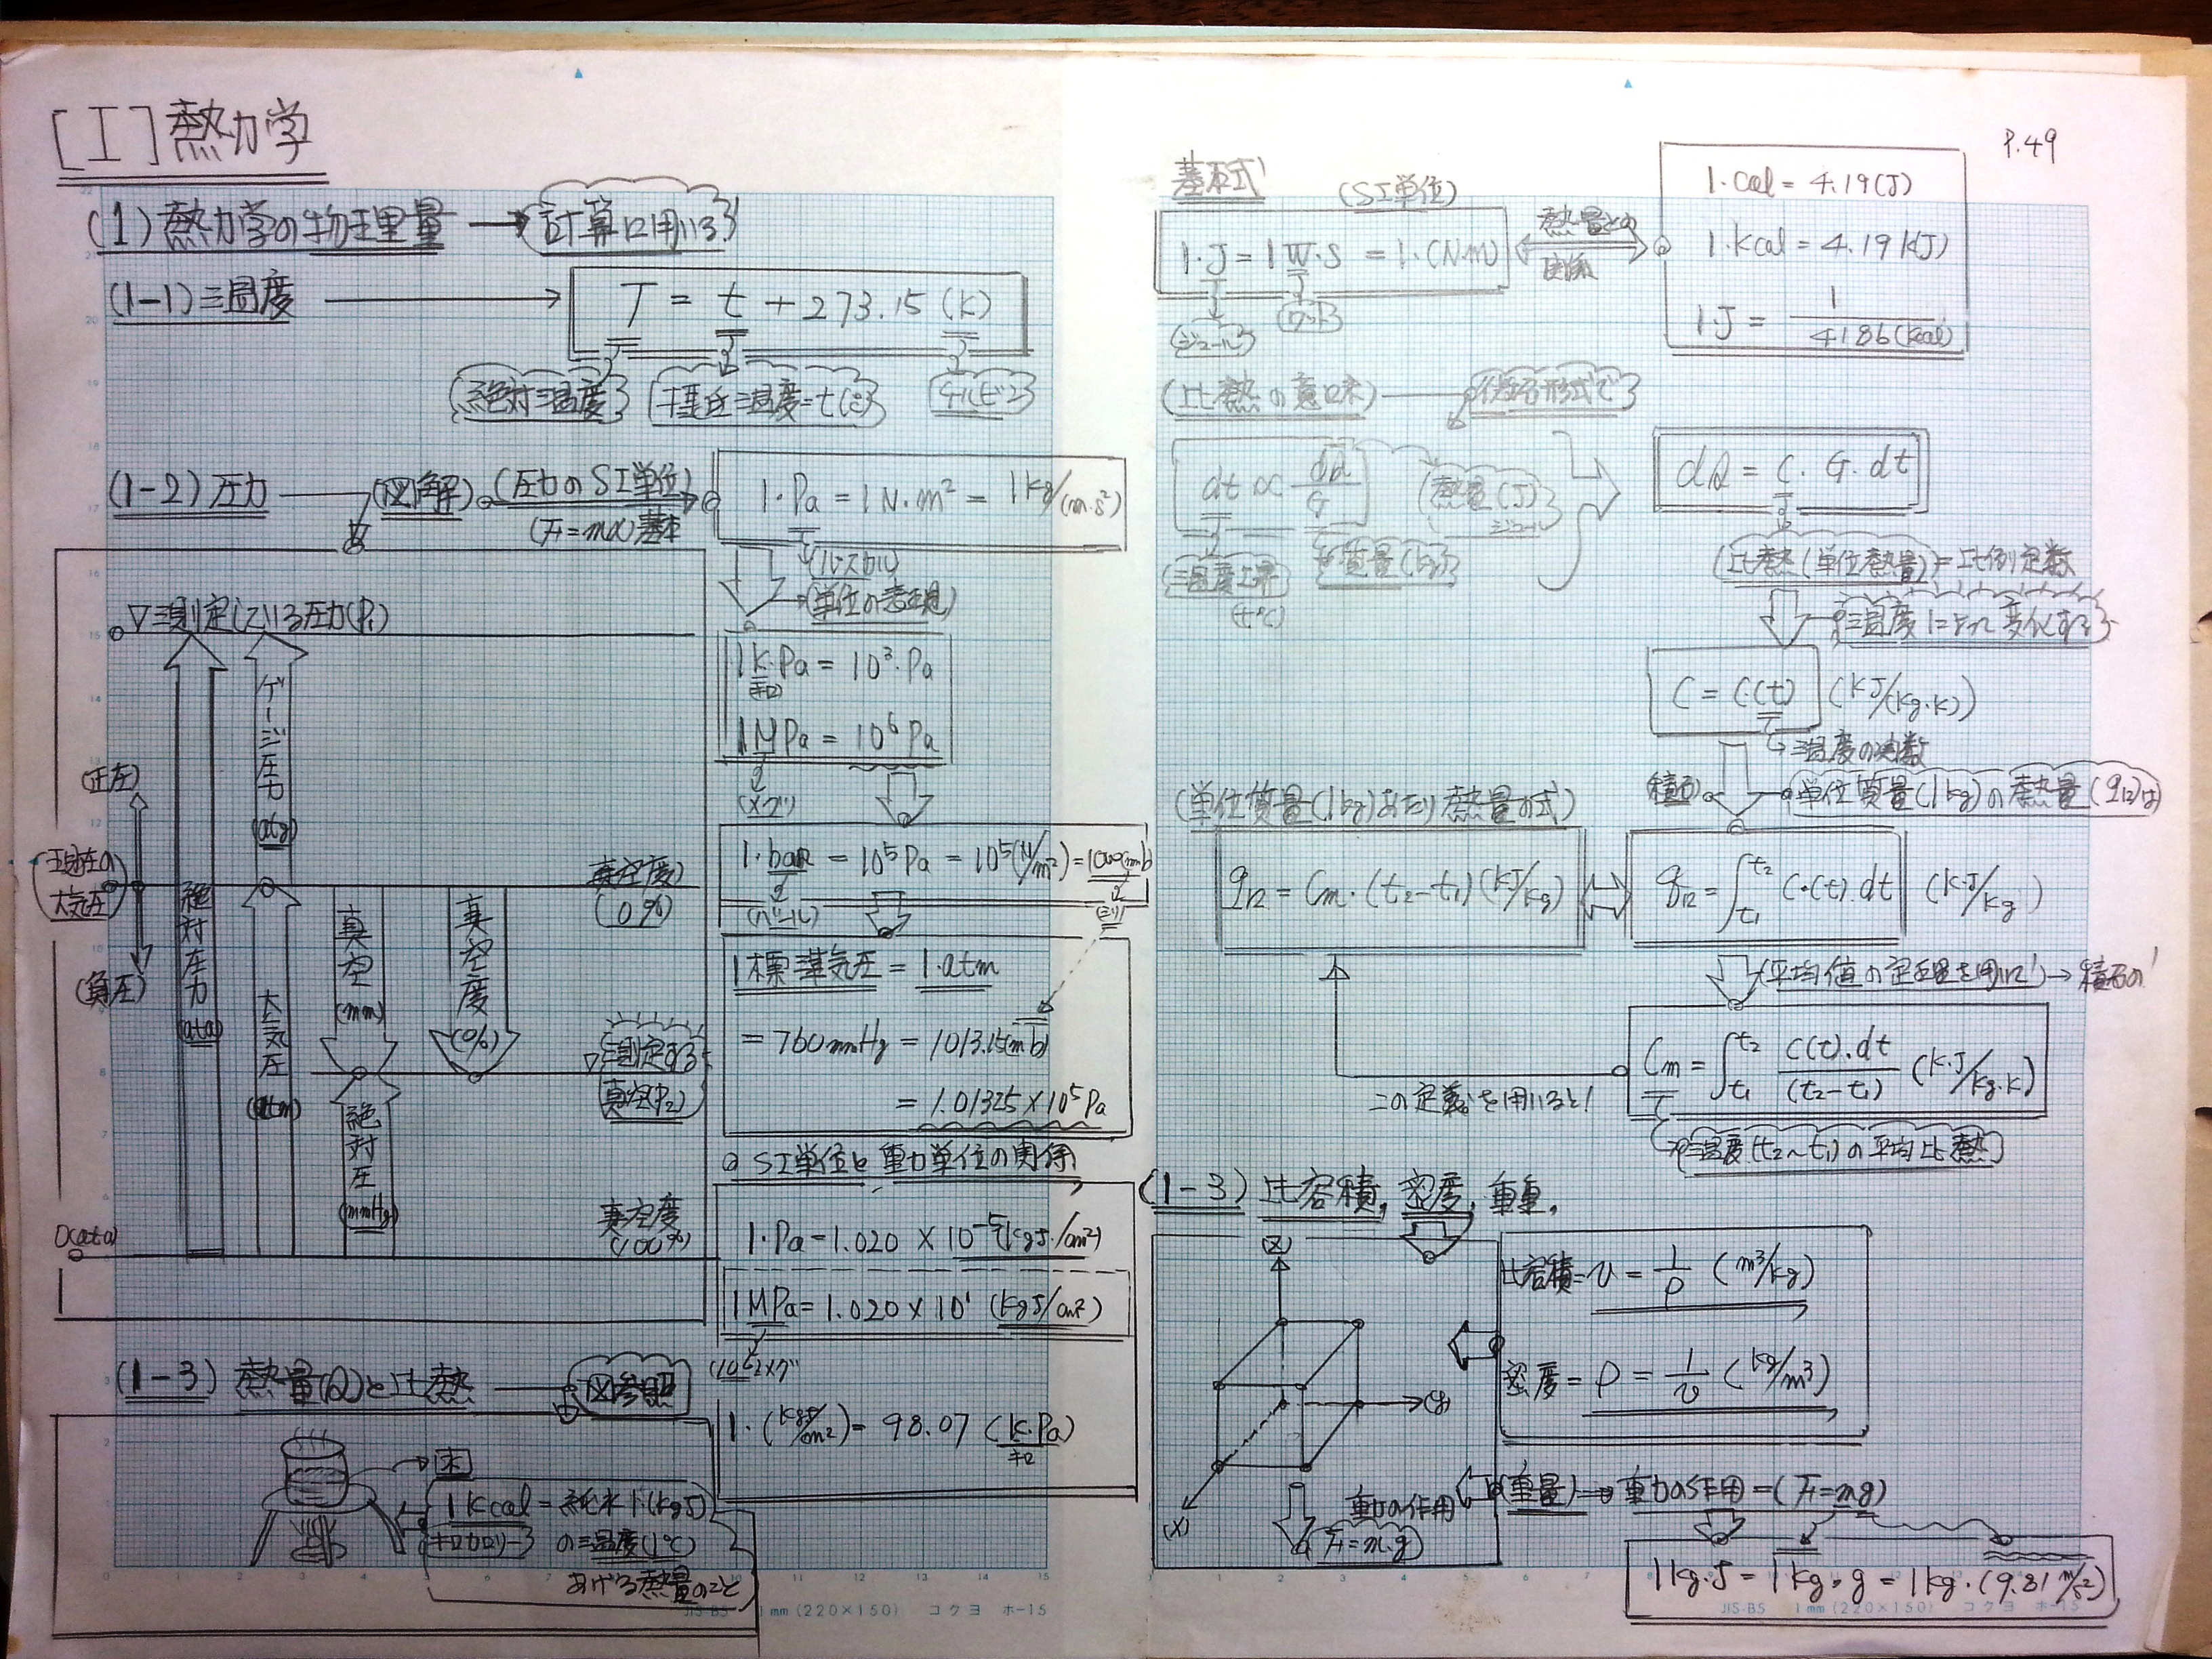 [I] 熱力学
(1) 熱力学の物理量 → 計算に用いる
(1-1) 温度 → T = t + 273.15 (K)
絶対温度 摂氏温度=t(℃) ケルビン
(1-2) 圧力 (図解) (圧力のSI単位)
(F=mα)基本
1.Pa = 1N.m² = 1kg/(m.s²)
(パスカル)
(単位の表現)
▽測定している圧力(P₁)
1k.Pa = 10³.Pa
キロ
1MPa = 10⁶Pa
(メガ)
ゲージ圧力(atg)
(正圧)
現在の大気圧
(負圧)
絶対圧力(ata)
大気圧(atm)
真空(mm)
真空度(%)
絶対圧(mmHg)
真空度(0%)
▽測定する真空(P₂)
真空度(100%)
0(ata)
1.bar = 10⁵Pa = 10⁵(N/m²) = 1000(mb)
(バール) (ミリ)
1標準気圧 = 1.atm
= 760mmHg = 1013.15(mb)
= 1.01325×10⁵Pa
○ SI単位と重力単位の関係
1.Pa = 1.020 × 10⁻⁵(kgf./cm²)
1MPa = 1.020 × 10¹ (kgf/cm²)
(10⁶)メガ
1.(kgf/cm²) = 98.07 (k.Pa)
キロ
(1-3) 熱量(Q)と比熱 図参照
水
1kcal = 純水1.(kgf)
キロカロリー の温度(1℃)
あげる熱量のこと
JIS-B5 1mm(220×150) コクヨ ホ-15
P.49
基本式 (SI単位)
1.J = 1W.S = 1.(N.m)
(ジュール) (ワット)
熱量との関係
1.cal = 4.19(J)
1.kcal = 4.19kJ)
1.J = 1/4186(kcal)
(比熱の意味) 微分形式で
dt ∝ dQ/G
熱量(J)
ジュール
温度上昇(t℃)
質量(kg)
dQ = C.G.dt
比熱(単位熱量)=比例定数
温度によって変化する
C = C(t) (kJ/(kg.K))
温度の関数
積分 単位質量(1kg)の熱量(q₁₂)は
(単位質量(1kg)あたり熱量の式)
q₁₂ = Cm.(t₂-t₁)(kJ/kg)
q₁₂ = ∫t₁t₂ C.(t).dt (k.J/kg)
(平均値の定理を用いて) → 積分の
Cm = ∫t₁t₂ C(t).dt/(t₂-t₁) (k.J/kg.k)
この定義を用いると!
温度(t₂~t₁)の平均比熱
(1-3) 比容積, 密度, 重量.
(Z)
(y)
(X)
比容積= v = 1/ρ (m³/kg)
密度= ρ = 1/v (kg/m³)
重力の作用
F=m.g
(重量) → 重力の作用=(F=mg)
1kg.f = 1kg.g = 1kg.(9.81m/s²)
JIS-B5 1mm(220×150) コクヨ ホ-15